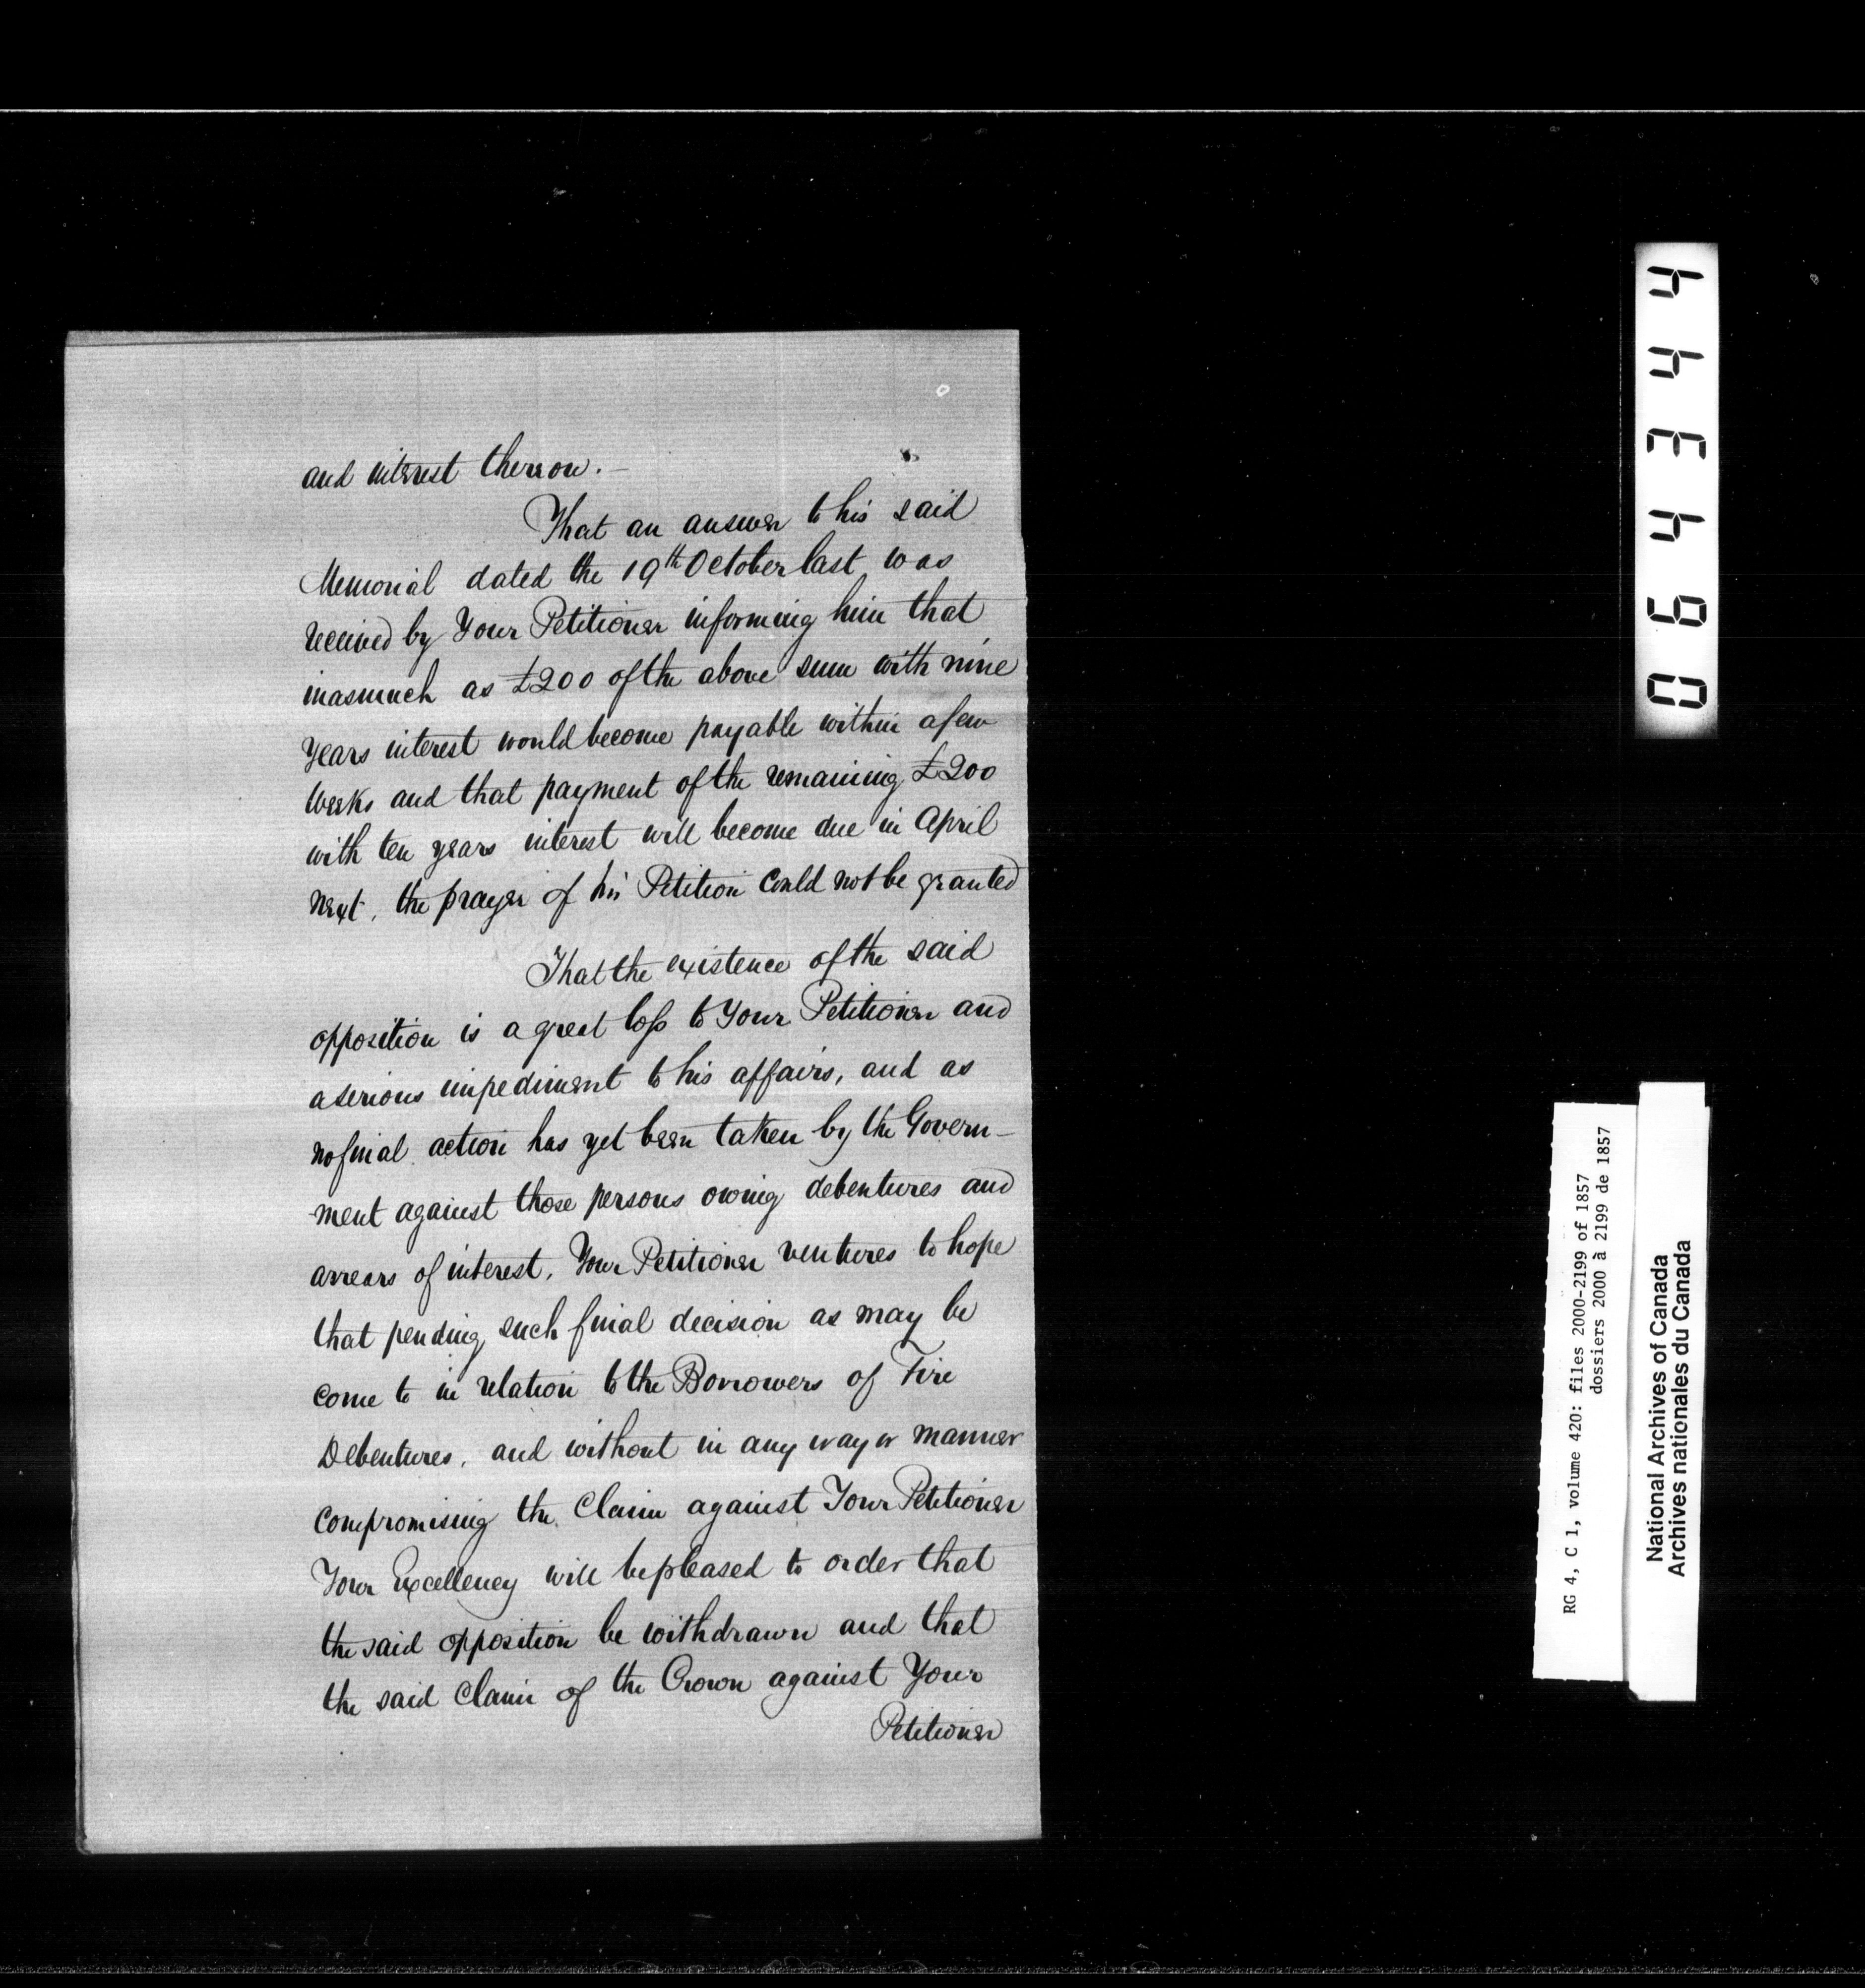 and interest thereon. —
That an answer to his said
Memorial dated the 19th October last was
received by Your Petitioner informing him that
inasmuch as £200 of the above sum with nine
years interest would become payable within a few
weeks and that payment of the remaining £200
with ten years interest will become due in April
next, the prayer of his Petition could not be granted
That the existence of the said
opposition is a great loss to Your Petitioner and
a serious impediment to his affairs, and as
no final action has yet been taken by the Govern-
-ment against those persons owing debentures and
arrears of interest, Your Petitioner ventures to hope
that pending such final decision as may be
come to in relation to the Borrowers of Fire
Debentures, and without in any way or manner
compromising the Claim against Your Petitioner
Your Excellency will be pleased to order that
the said opposition be withdrawn and that
the said Claim of the Crown against Your
Petitioner
064344
RG 4, C 1, volume 420: files 2000-2199 of 1857
dossiers 2000 à 2199 de 1857
National Archives of Canada
Archives nationales du Canada